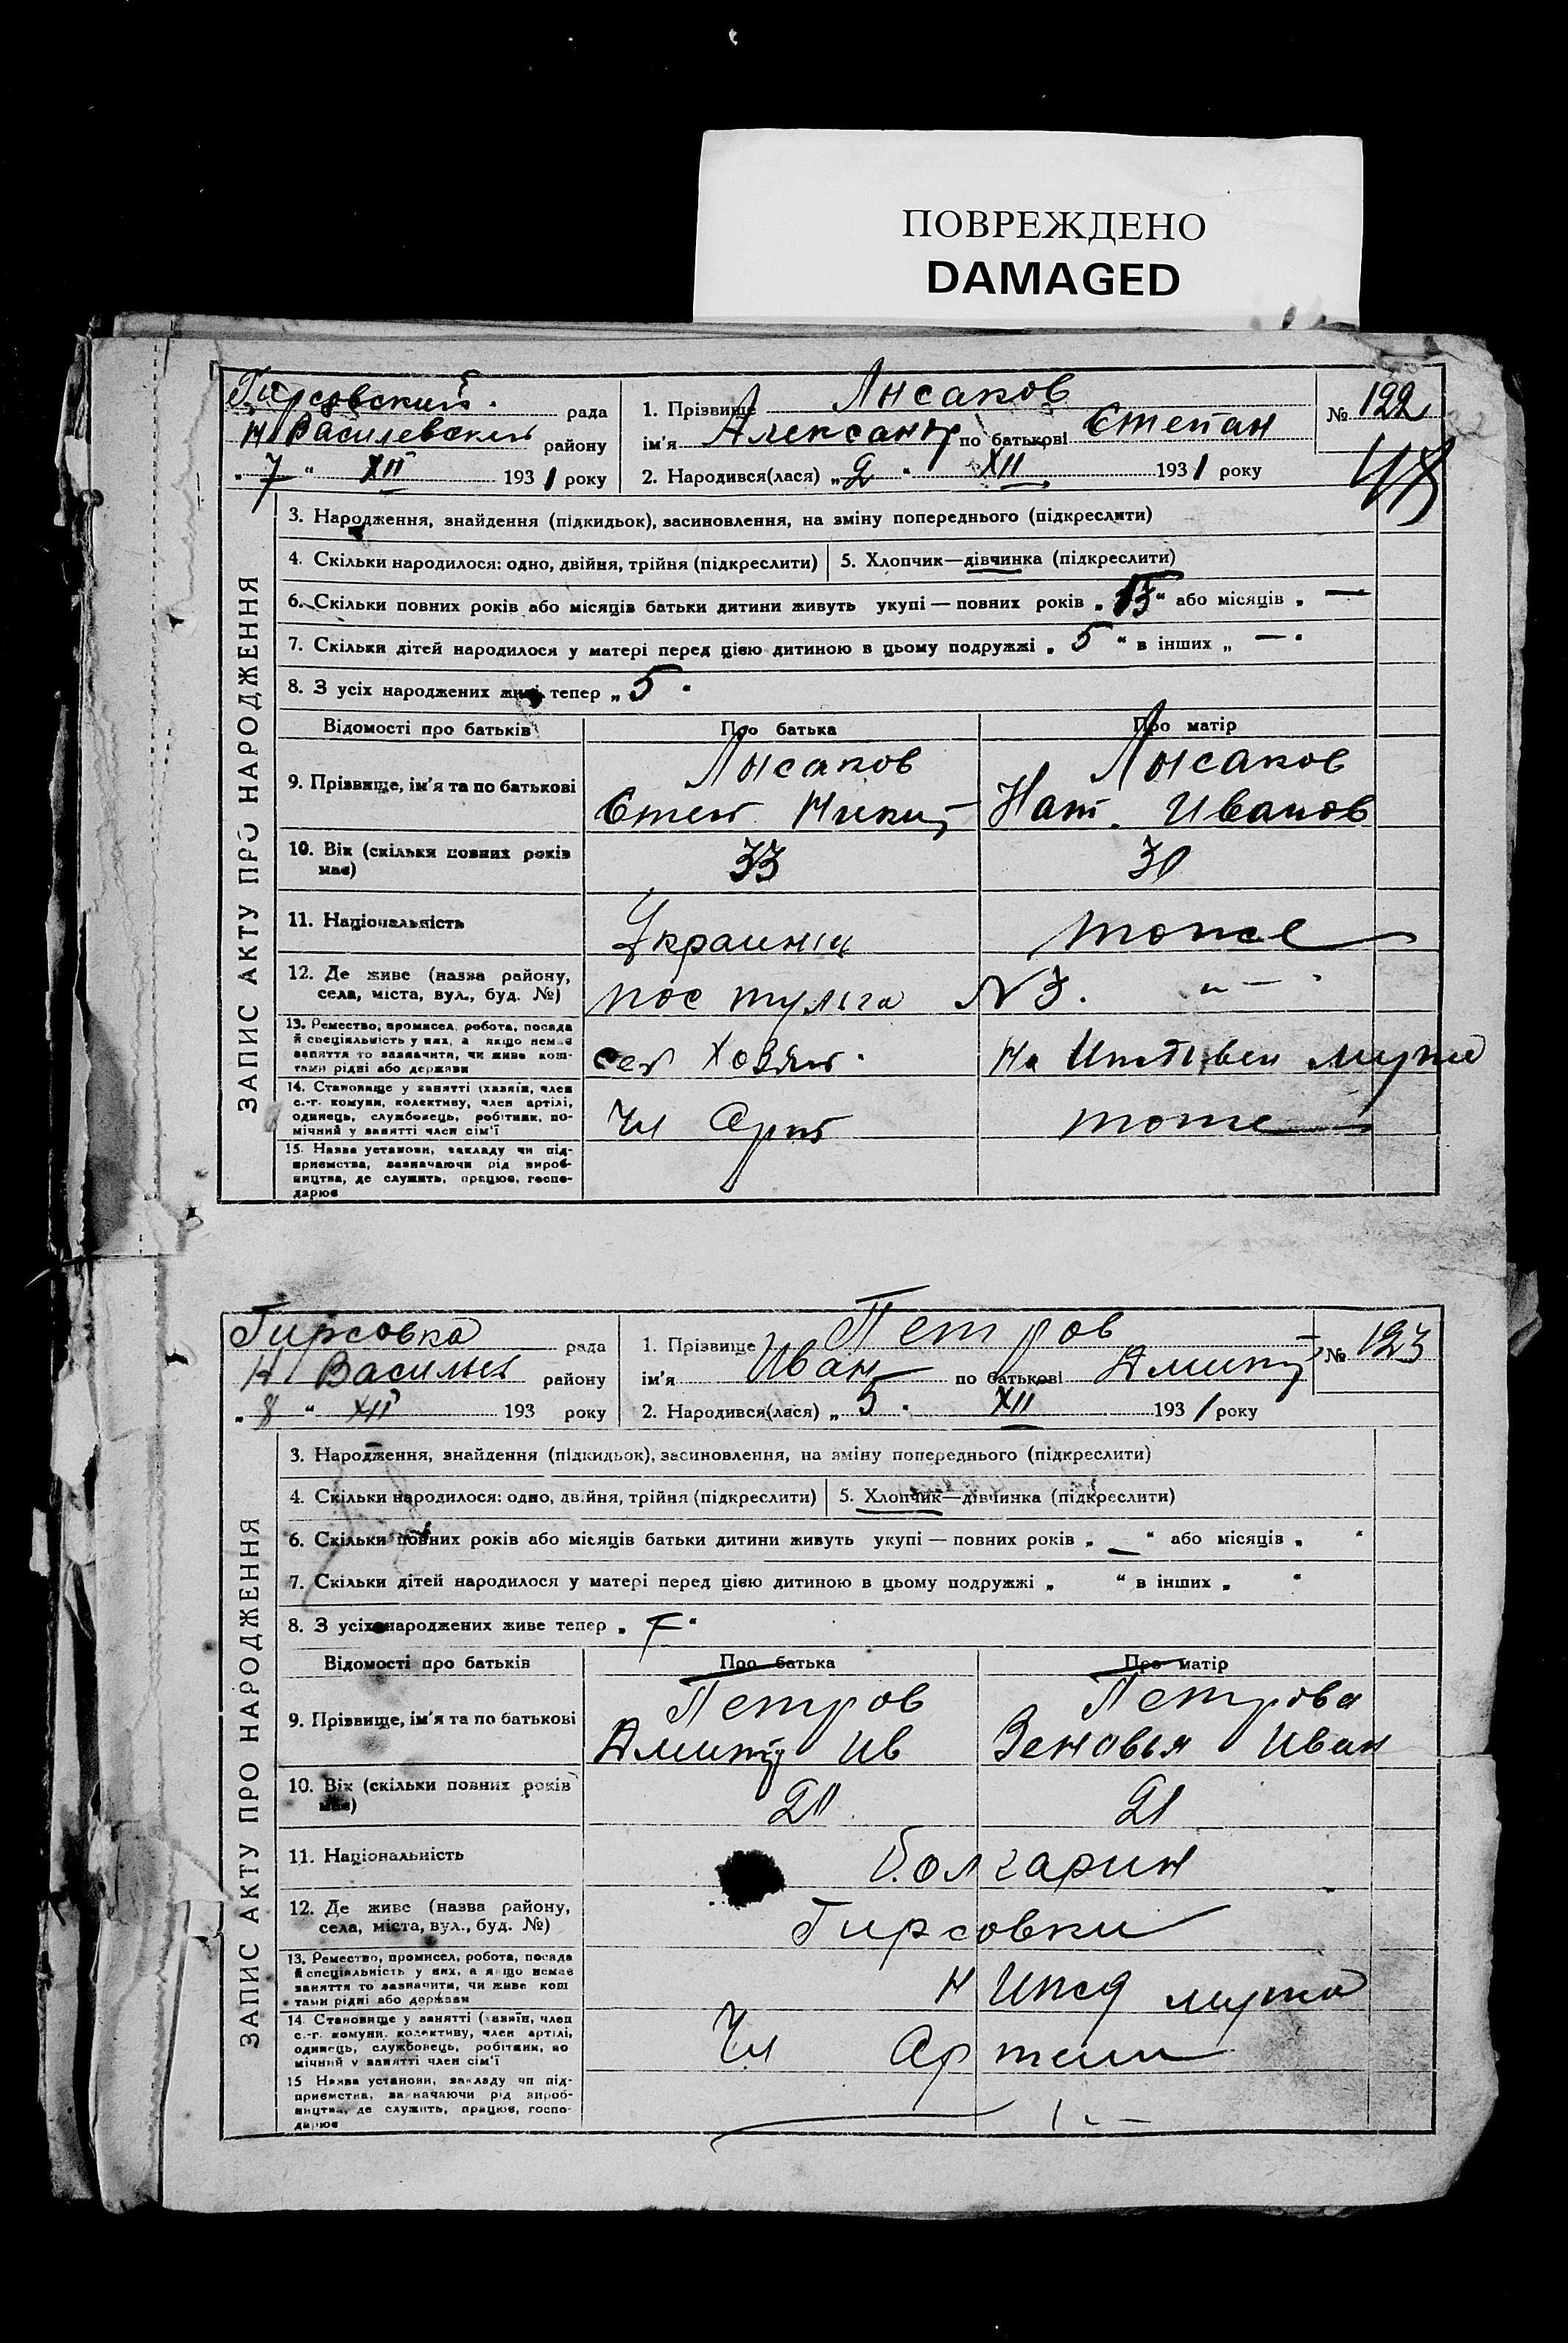 ПОВРЕЖДЕНО
DAMAGED
Гирсовский рада
Н Василевский району
„ 7 “ XII 1931 року
1. Прізвище Лисаков
ім'я Александр по батькові Степан
2. Народився(лася) „ 2 “ XII 1931 року
№ 122
48
ЗАПИС АКТУ ПРО НАРОДЖЕННЯ
3. Народження, знайдення (підкидьок), засиновлення, на зміну попереднього (підкреслити)
4. Скільки народилося: одно, двійня, трійня (підкреслити) 5. Хлопчик—дівчинка (підкреслити)
6. Скільки повних років або місяців батьки дитини живуть укупі — повних років „ “ або місяців „ —
7. Скільки дітей народилося у матері перед цією дитиною в цьому подружжі „ 5 “ в інших „ — “
8. З усіх народжених живі тепер „ 5 “
Відомості про батьків Про батька Про матір
9. Прізвище, ім'я та по батькові
Лысаков Лысаков
Степ Никит Нат. Иванов
10. Вік (скільки повних років має) 33 30
11. Національність Украинец тоже
12. Де живе (назва району, села, міста, вул., буд. №) пос № 3. „ — “
13. Ремество, промисел, робота, посада й спеціяльність у них, а якщо немає заняття то зазначити, чи живе коштами рідні або держави
сел Хозяин На Иждивен мужа
14. Становище у занятті (хазяїн, член с.-г. комуни, колективу, член артілі, одинець, службовець, робітник, помічний у занятті член сім'ї
Чл Арт тоже
15. Назва установи, закладу чи підприємства, зазначаючи рід виробництва, де служить, працює, господарює
Гирсовка рада
Н Васильев району
„ 8 “ XII 193 року
1. Прізвище Петров
ім'я Иван по батькові Дмитр
2. Народився(лася) „ 5 “ XII 1931 року
№ 123
ЗАПИС АКТУ ПРО НАРОДЖЕННЯ
3. Народження, знайдення (підкидьок), засиновлення, на зміну попереднього (підкреслити)
4. Скільки народилося: одно, двійня, трійня (підкреслити) 5. Хлопчик—дівчинка (підкреслити)
6. Скільки повних років або місяців батьки дитини живуть укупі — повних років „ — “ або місяців „ “
7. Скільки дітей народилося у матері перед цією дитиною в цьому подружжі „ “ в інших „ “
8. З усіх народжених живе тепер „ “
Відомості про батьків Про батька Про матір
9. Прізвище, ім'я та по батькові
Петров Петрова
Дмитр Ив Зеновья Иван
10. Вік (скільки повних років має) 20 21
11. Національність Болгарин
12. Де живе (назва району, села, міста, вул., буд. №) Гирсовки
13. Ремество, промисел, робота, посада й спеціяльність у них, а якщо немає заняття то зазначити, чи живе коштами рідні або держави
Н Ижд мужа
14. Становище у занятті (хазяїн, член с.-г. комуни, колективу, член артілі, одинець, службовець, робітник, помічний у занятті член сім'ї
Чл Артели
15 Назва установи, закладу чи підприємства, зазначаючи рід виробництва, де служить, працює, господарює